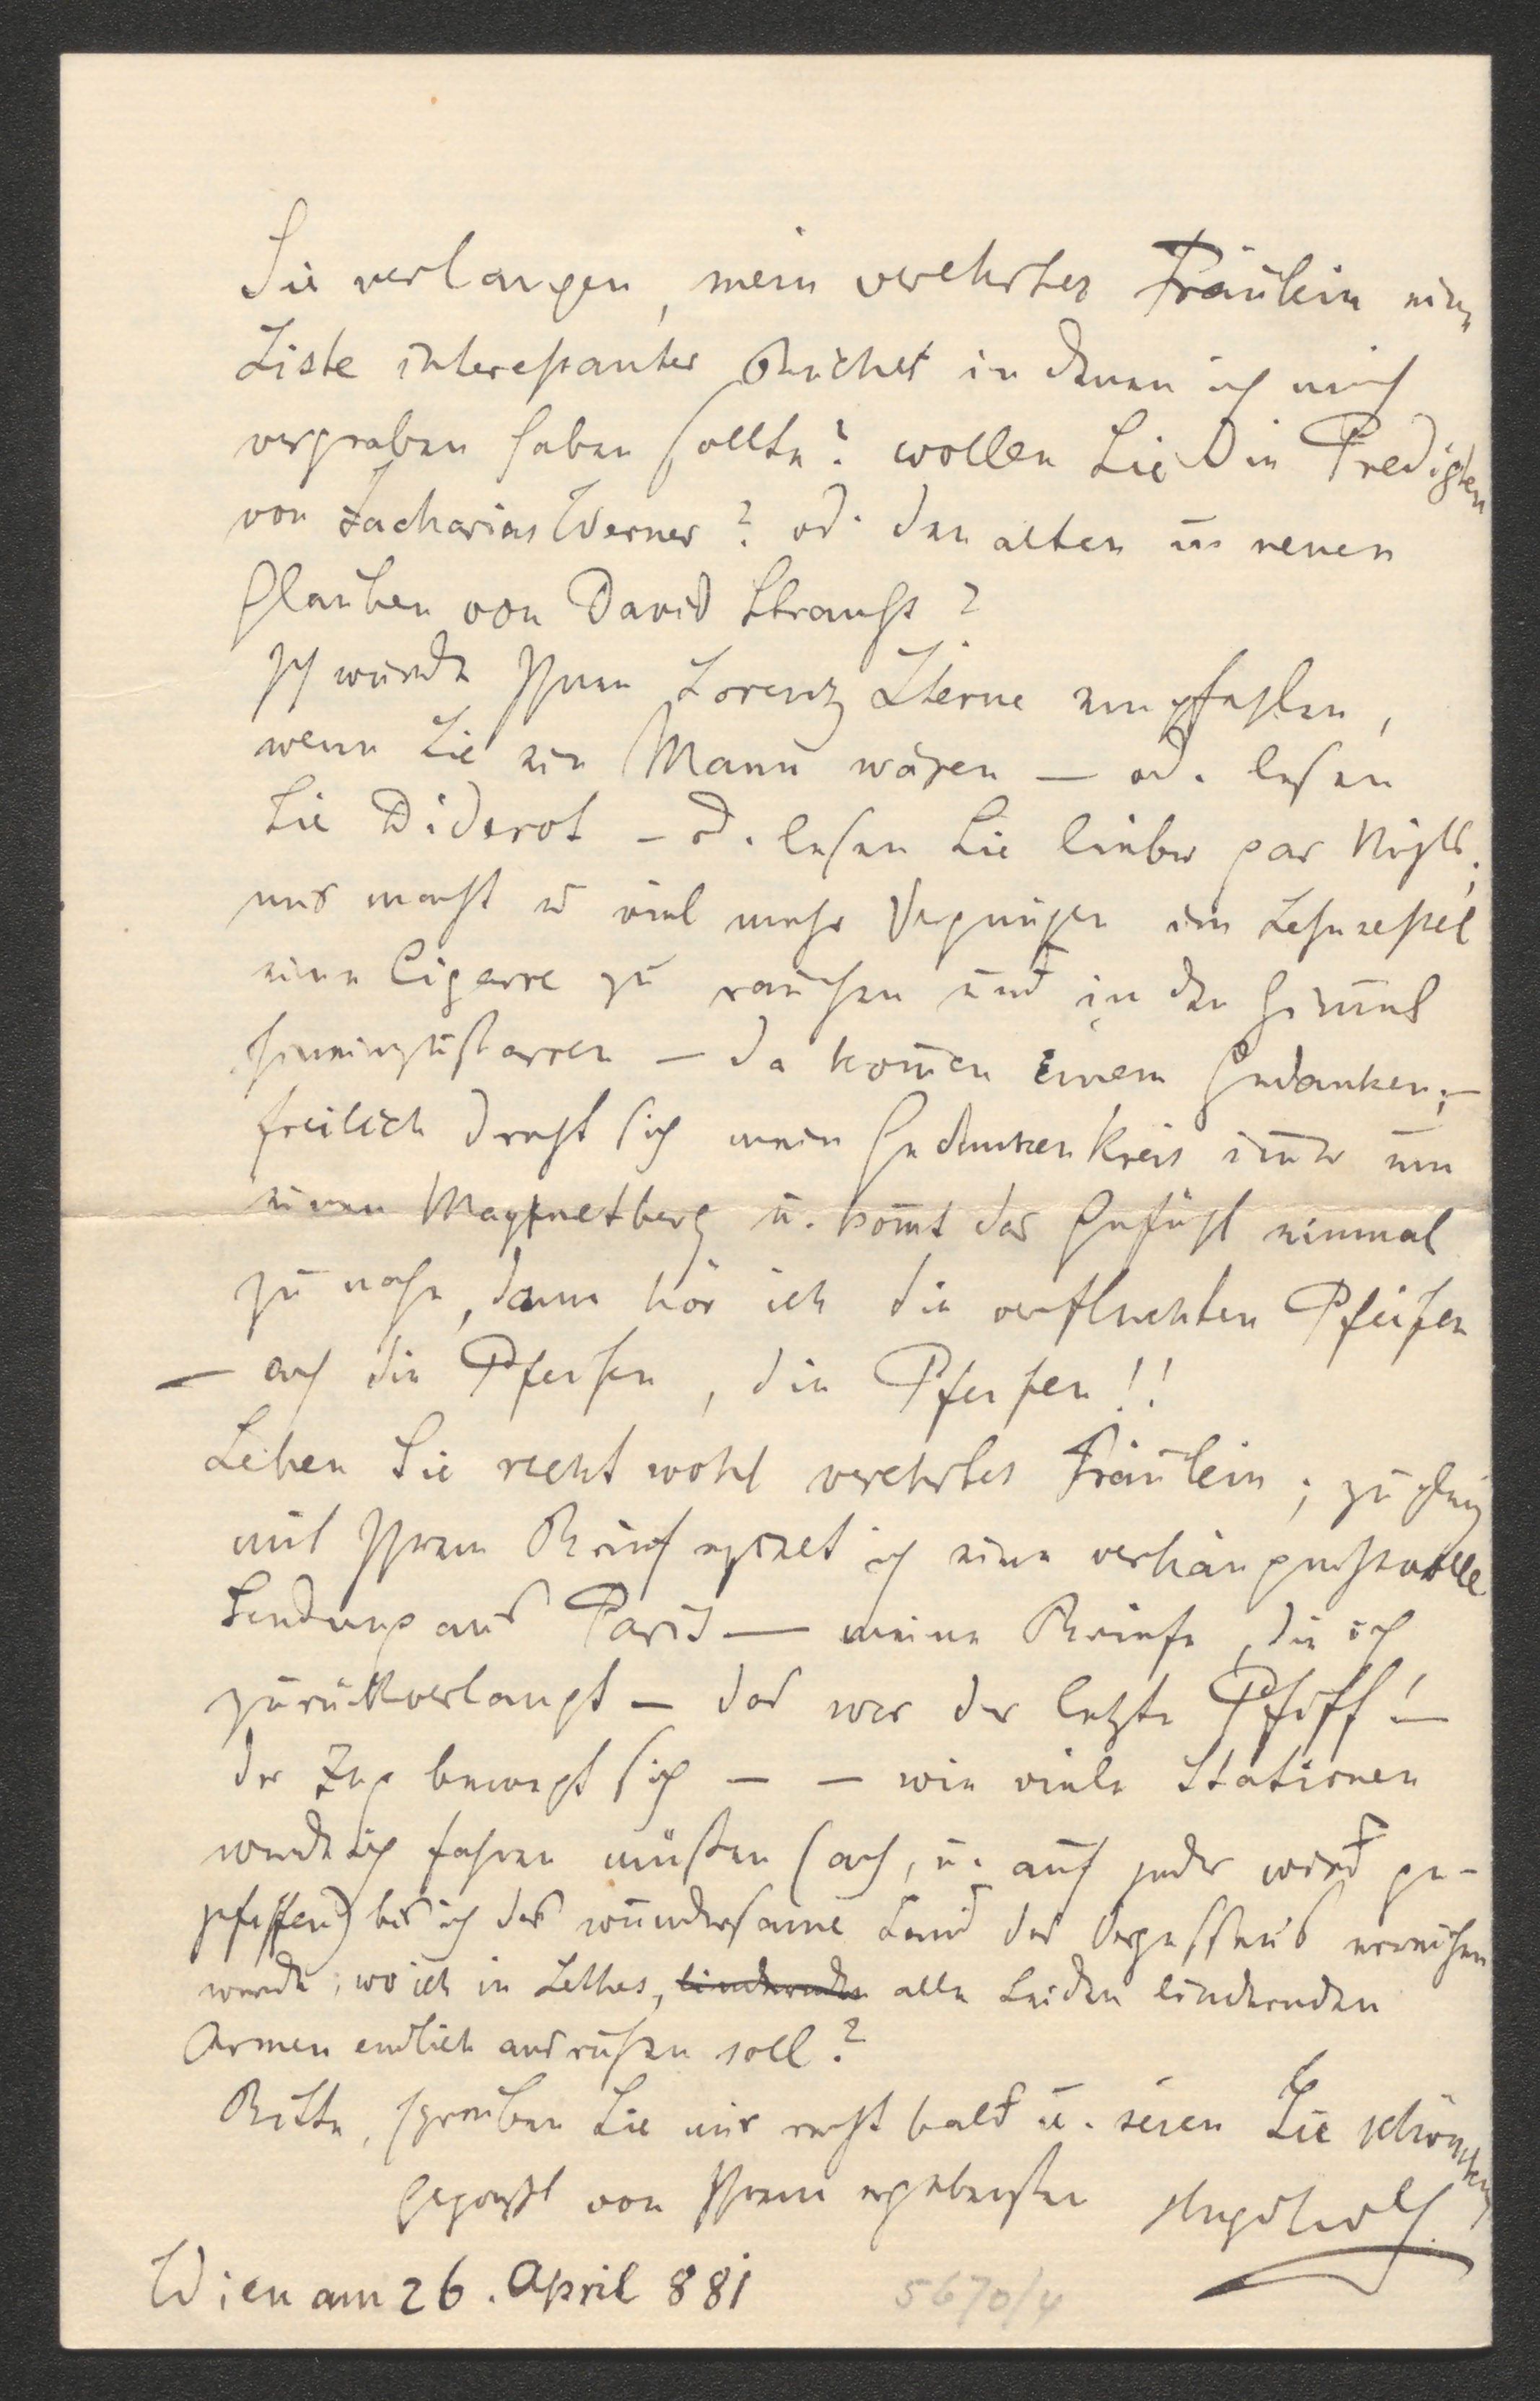 Sie verlangen, mein verehrtes Fräulein eine
Liste interessanter Bücher in denen ich mich
vergraben haben sollte? wollen Sie Die Predigten
von Zacharias Werner? od. den alten u. neuen
Glauben von David Strauss?
Ich würde Ihnen Lorenz Sterne empfehlen,
wenn Sie ein Mann wären — od. lesen
Sie Diderot – od. lesen Sie lieber gar Nichts;
mir macht es viel mehr Vergnügen im Lehnsessel
eine Cigarre zu rauchen und in den Himmel
hineinzustarren — da kom̅en Einem Gedanken; —
freilich dreht sich mein Gedankenkreis im̅er um
einen Magnetberg u. kom̅t das Gefühl einmal
zu nahe, dann hör ich die verfluchten Pfeifen
— ach die Pfeifen, die Pfeifen!!
Leben Sie recht wohl verehrtes Fräulein; zugleich
mit Ihrem Brief erhielt ich eine verhängnissvolle
Sendung aus Paris — meine Briefe, die ich
zurückverlangt — das war der letzte Pfiff! —
der Zug bewegt sich — — wie viele Stationen
werde ich fahren müssen (ach, u. auf jeder wird ge-
pfiffen) bis ich das wundersame Land des Vergessens erreichen
werde, wo ich in Lethes, lindernden alle Leiden lindernden
Armen endlich ausruhen soll?
Bitte, schreiben Sie mir recht bald u. seien Sie schönstens
gegrüsst von Ihrem ergebensten Hugo Wolf
Wien am 26. April 881
5670/4